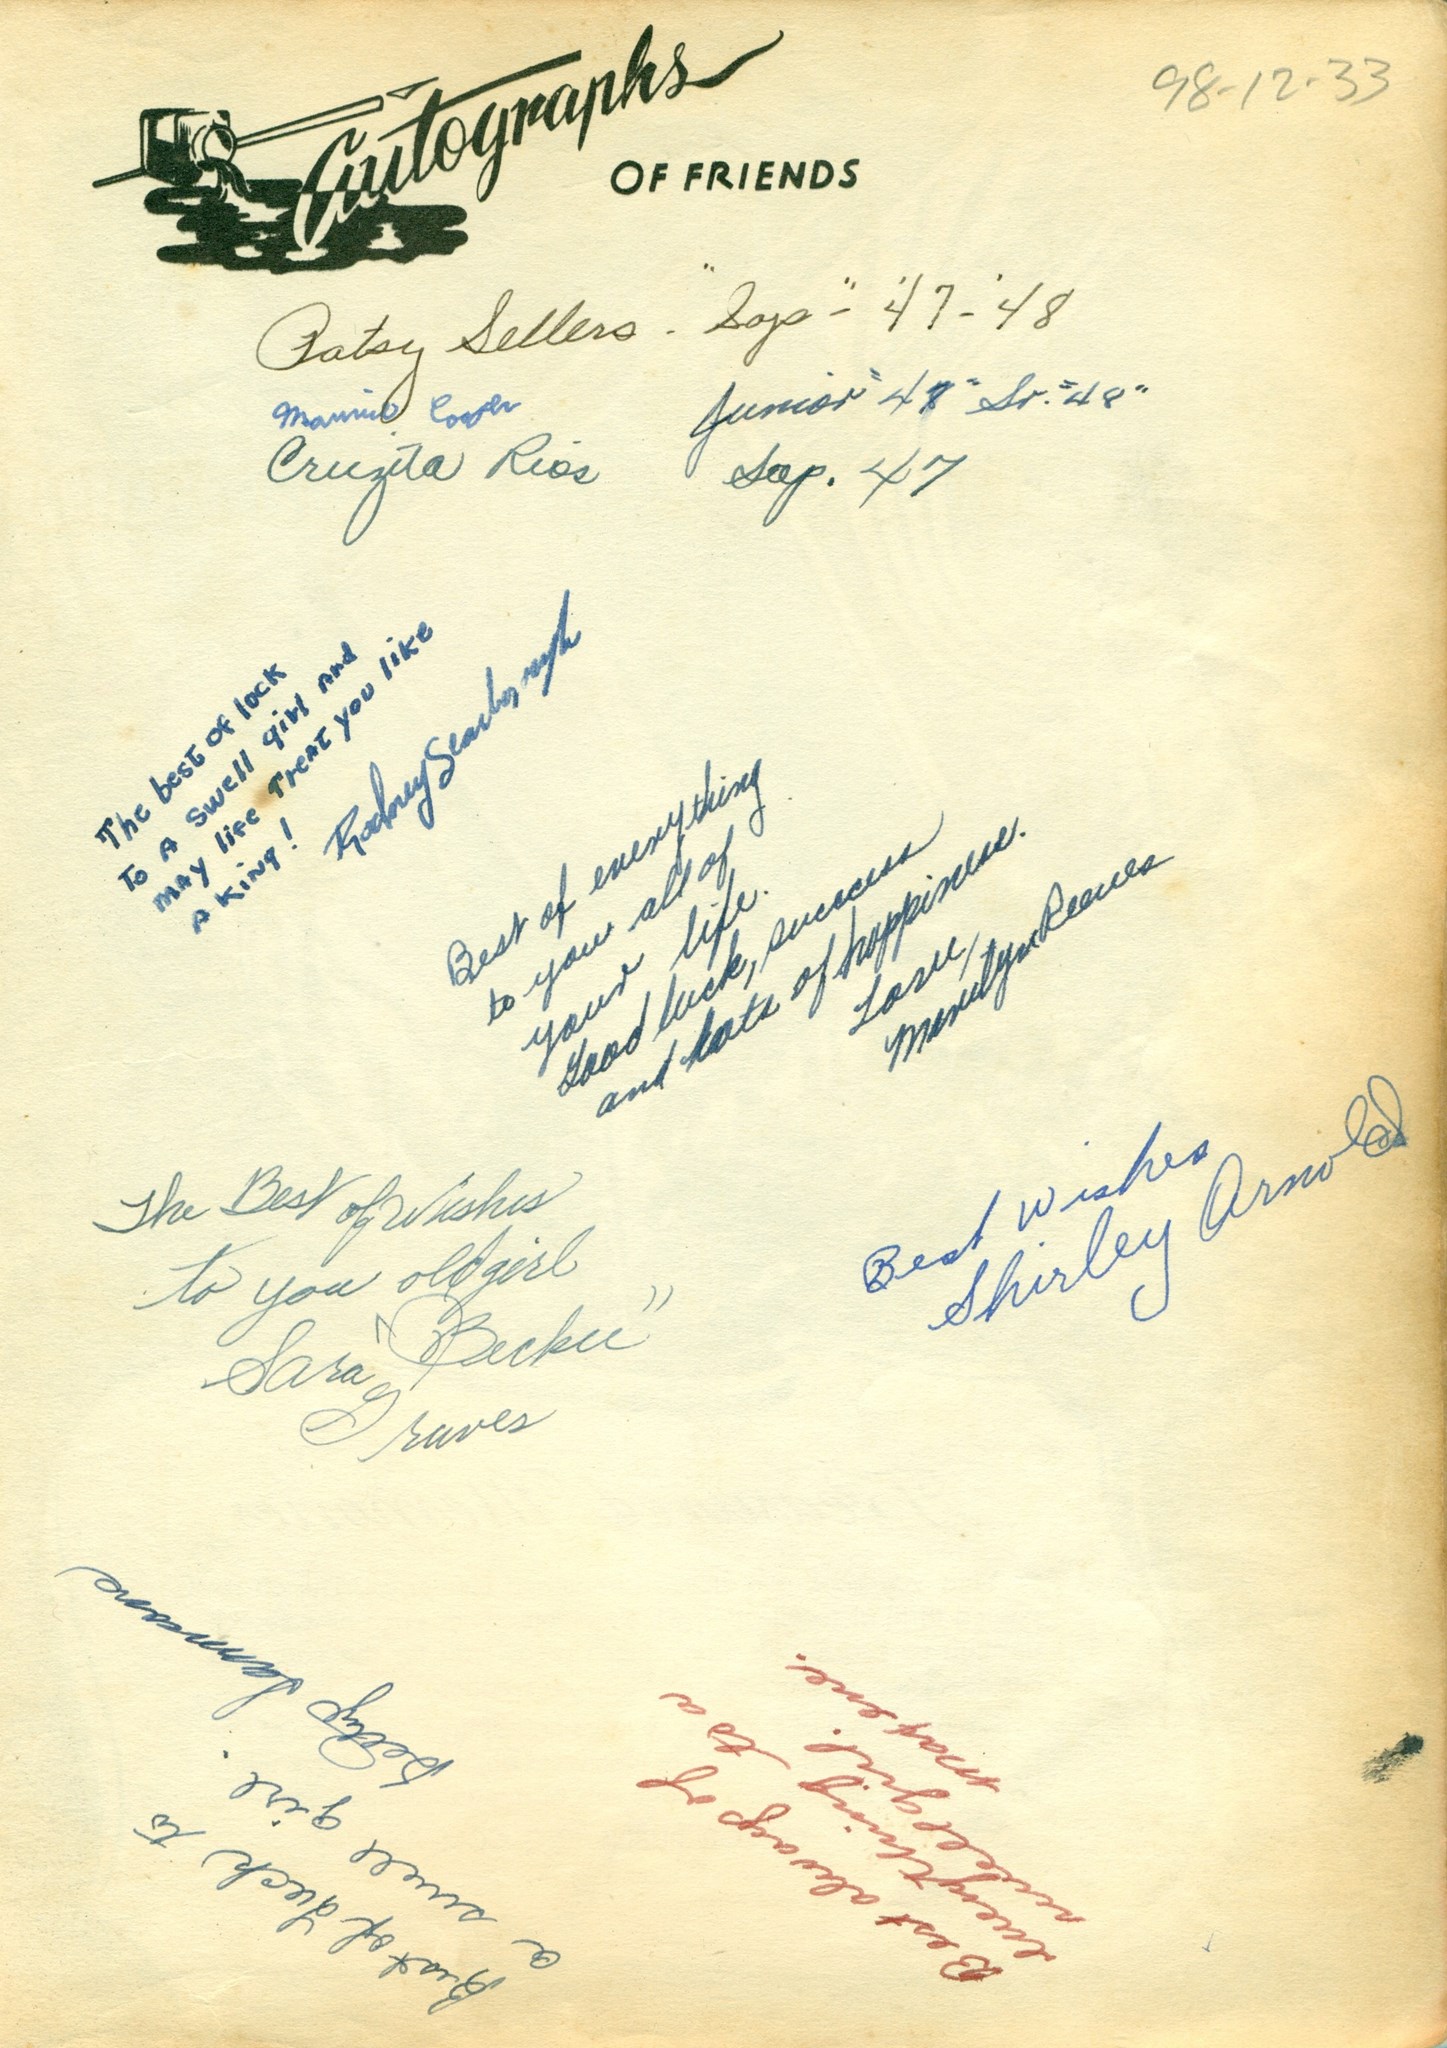 98-12-33
Autographs
OF FRIENDS
Patsy Sellers - "Sop" - '47-'48
Maurice Cooper
Junior "48" Sr. "48"
Cruzita Rios
Sop. 47
The best of lock
To A Swell girl And
may life Treat you like
A King!
Rodney Scarborough
Best of everything
to you all of
your life.
Good luck, success
and lots of happiness.
Love,
Marilyn Reeves
Best Wishes
Shirley Arnold
The Best of Wishes
to you old girl
Sara "Beckie"
Graves
Best of Luck to
a swell girl.
Betty Sammons
Best always of
everything to a
swell girl.
Maxene.